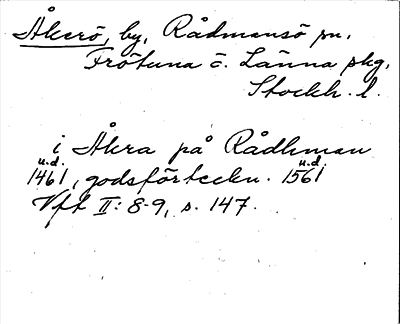 Åkerö, by, Rådmansö sn.
Frötuna o. Länna skg,
Stockh. l.
i Åkra på Rådhman
u.d. u.d.
1461, godsförteckn. 1561
Vfl II: 8-9, s. 147.